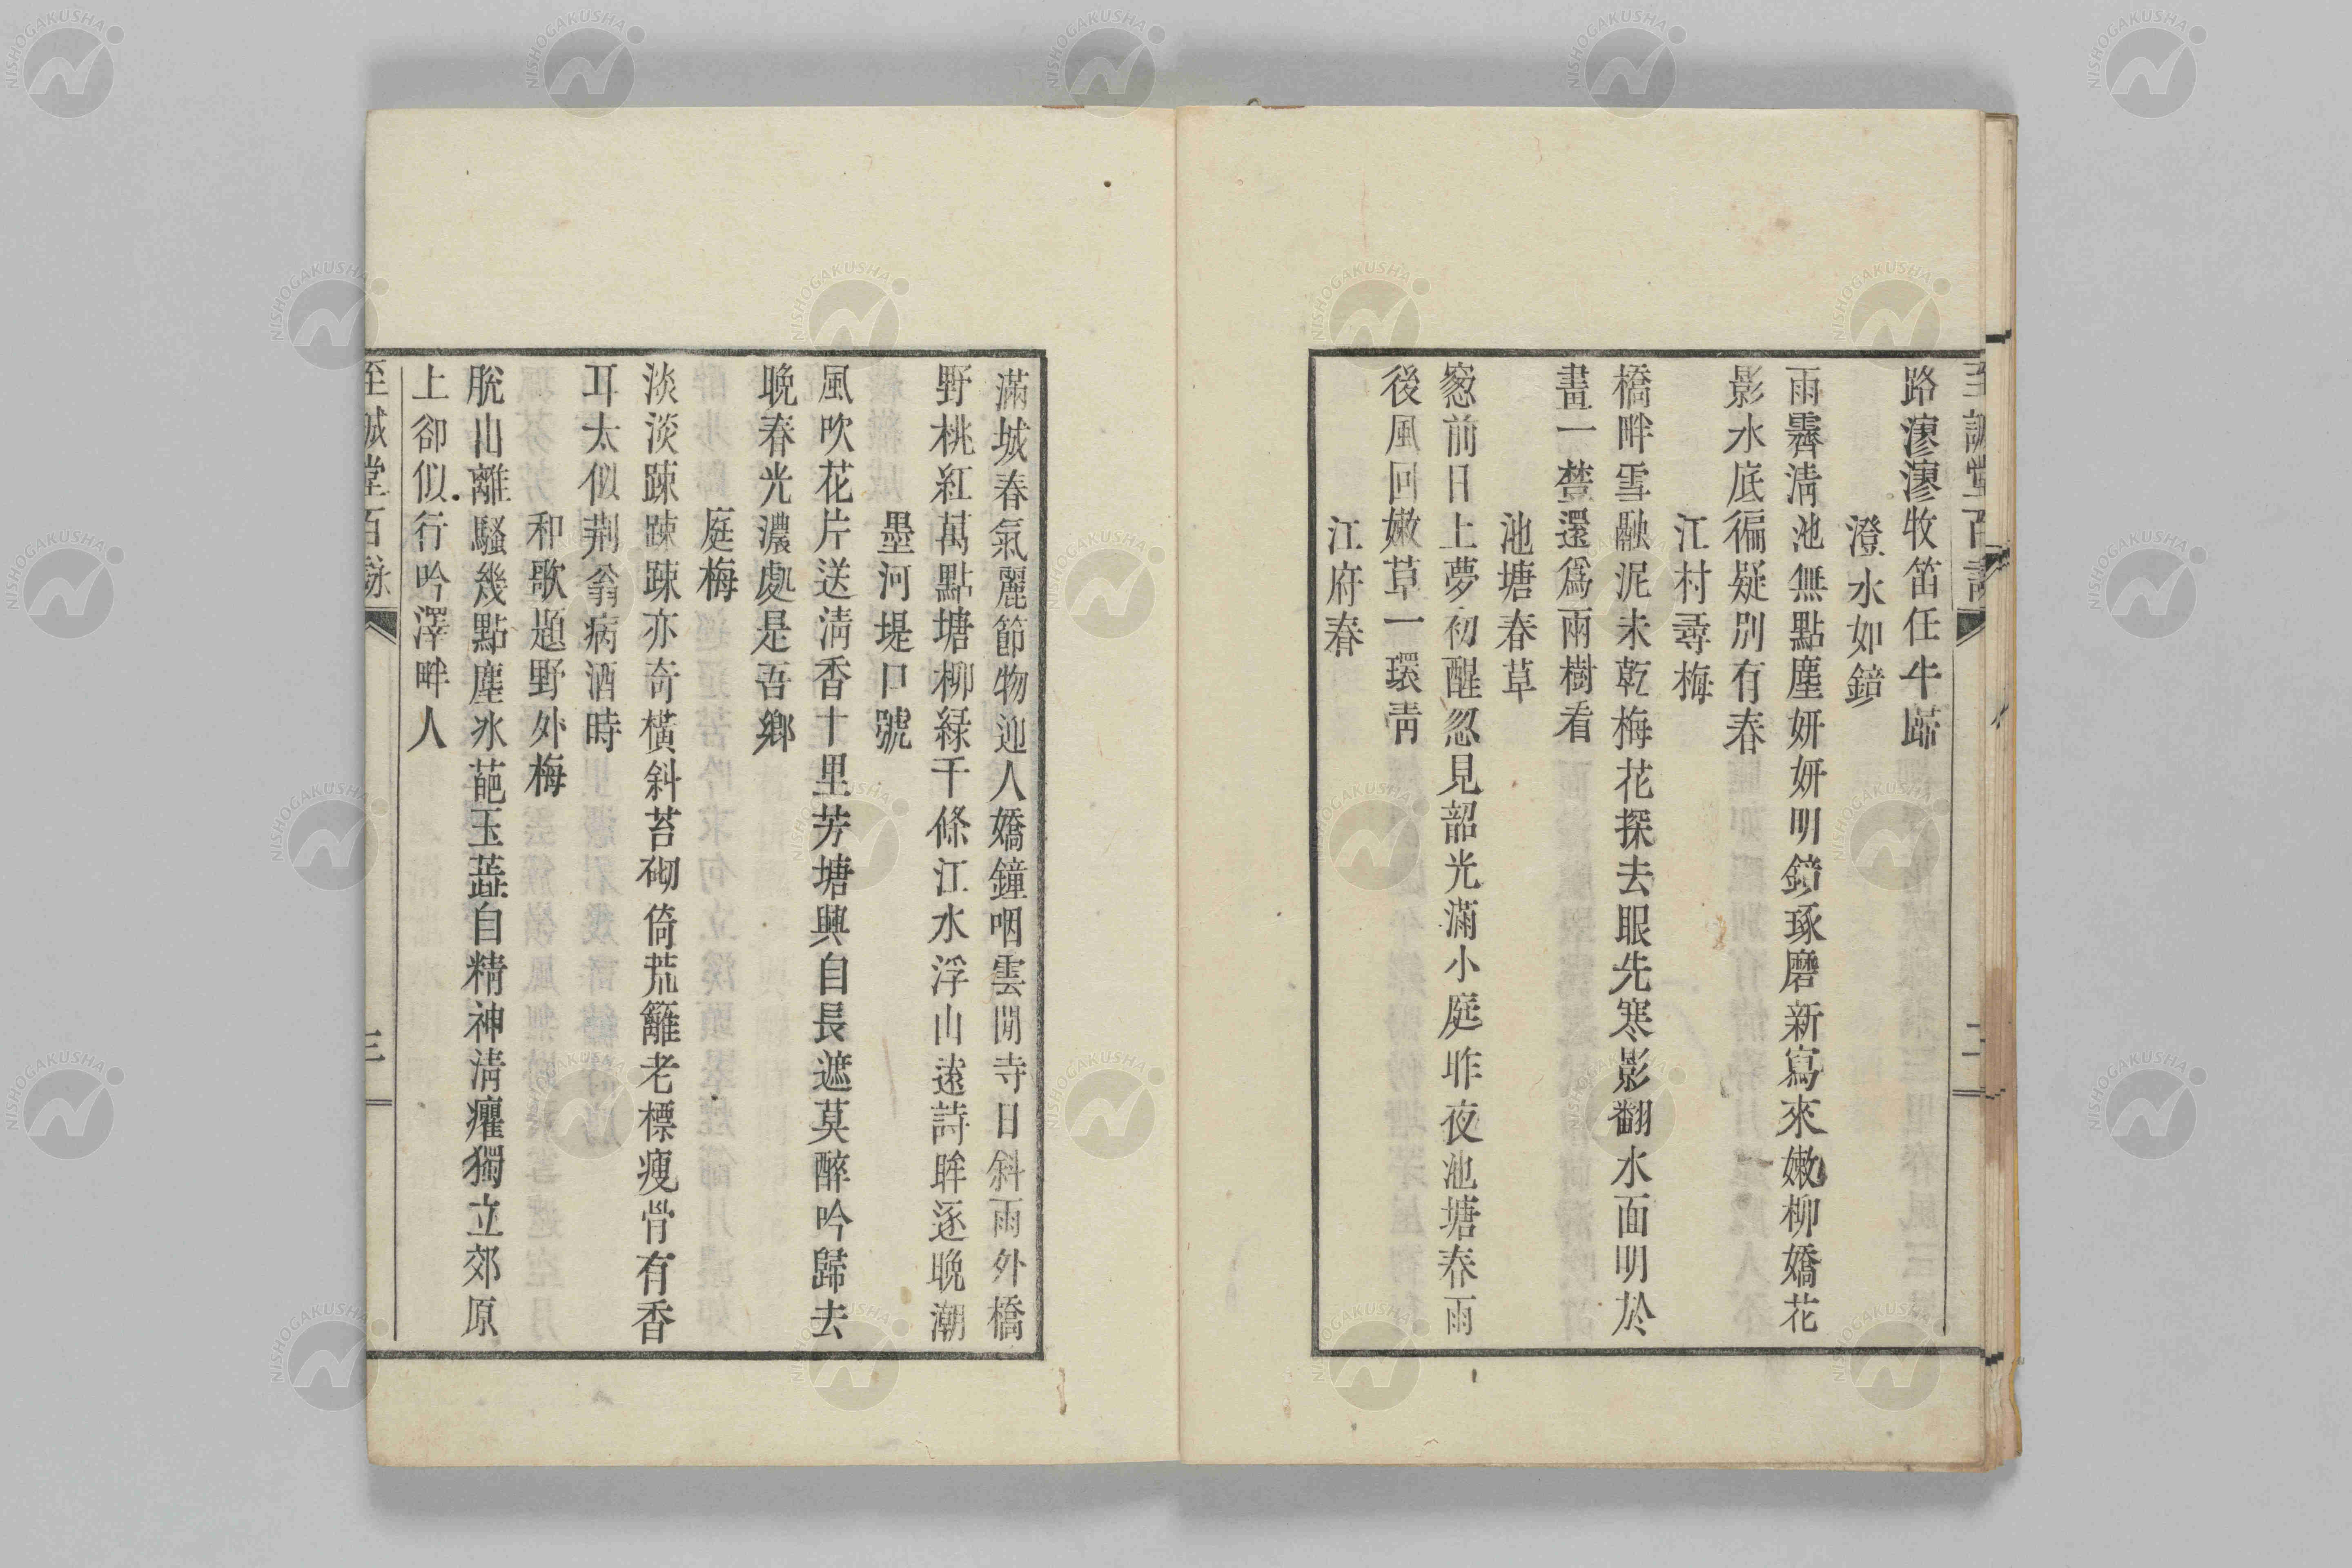 路漻漻牧笛任牛歸
澄水如鏡
雨霽淸池無點塵妍妍明鏡琢磨新寫來嫩柳嬌花
影水底徧疑別有春
江村尋梅
橋畔雪融泥未乾梅花探去眼先寒影翻水面明於
畫一㮔還爲兩樹看
池塘春草
窓前日上夢初醒忽見韶光滿小庭昨夜池塘春雨
後風回嫩草一環靑
江府春
滿城春氣麗節物迎人嬌鐘咽雲間寺日斜雨外橋
野桃紅萬點塘柳緑千條江水浮山遠詩眸逐晚潮
墨河堤口號
風吹花片送淸香十里芳塘興自長遮莫醉吟歸去
晚春光濃處是吾鄉
庭梅
淡淡踈踈踈亦奇橫斜苔砌倚荒籬老標瘦骨有香
耳太似荆翁病酒時
和歌題野外梅
脫出離騷幾點塵氷葩玉蕋自精神淸癯獨立郊原
上卻似行吟澤畔人
至誠堂百詠
三
二
NISHOGAKUSHA